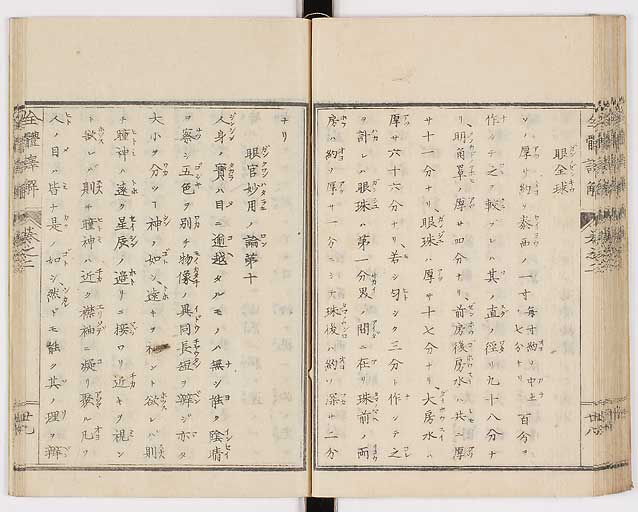 眼全球
ソノ厚サ約ソ泰西ノ一寸 毎寸約ソ中土ノ七分ナリ 百分ヲ
作シテ之ヲ較ブレハ其ノ直ノ徑リ九十八分ナ
リ明角罩ノ厚サ四分ナリ前房後房水ハ共ニ厚
サ十一分ナリ眼珠ハ厚サ十七分ナリ大房水ハ
厚サ六十六分ナリ若シ匀シク三分ト作シテ之
ヲ計レハ眼珠ハ第一分界ノ間ニ在リ珠前ノ兩
房ハ約ソ厚サ一分ニシテ珠後ハ約ソ深サ二分
ナリ
眼官妙用ノ論第十
人身ノ寳ハ目ニ逾越タルモノハ無シ能ク陰晴
ヲ察シ五色ヲ別チ物像ノ異同長短ヲ辯ジ亦タ
大小ヲ分ツ神ノ如シ遠キヲ視ント欲レバ則
チ瞳神ハ遠ク星辰ノ邉リニ接ワリ近キヲ視ン
ト欲レバ則チ瞳神ハ近ク襟袖ニ凝リ聚ル凡ソ
人ノ目ハ皆ナ是ノ如シ然レドモ能ク其ノ理ヲ辯
全體譯解
卷之二
廿八
全體譯解
卷之二
廿九